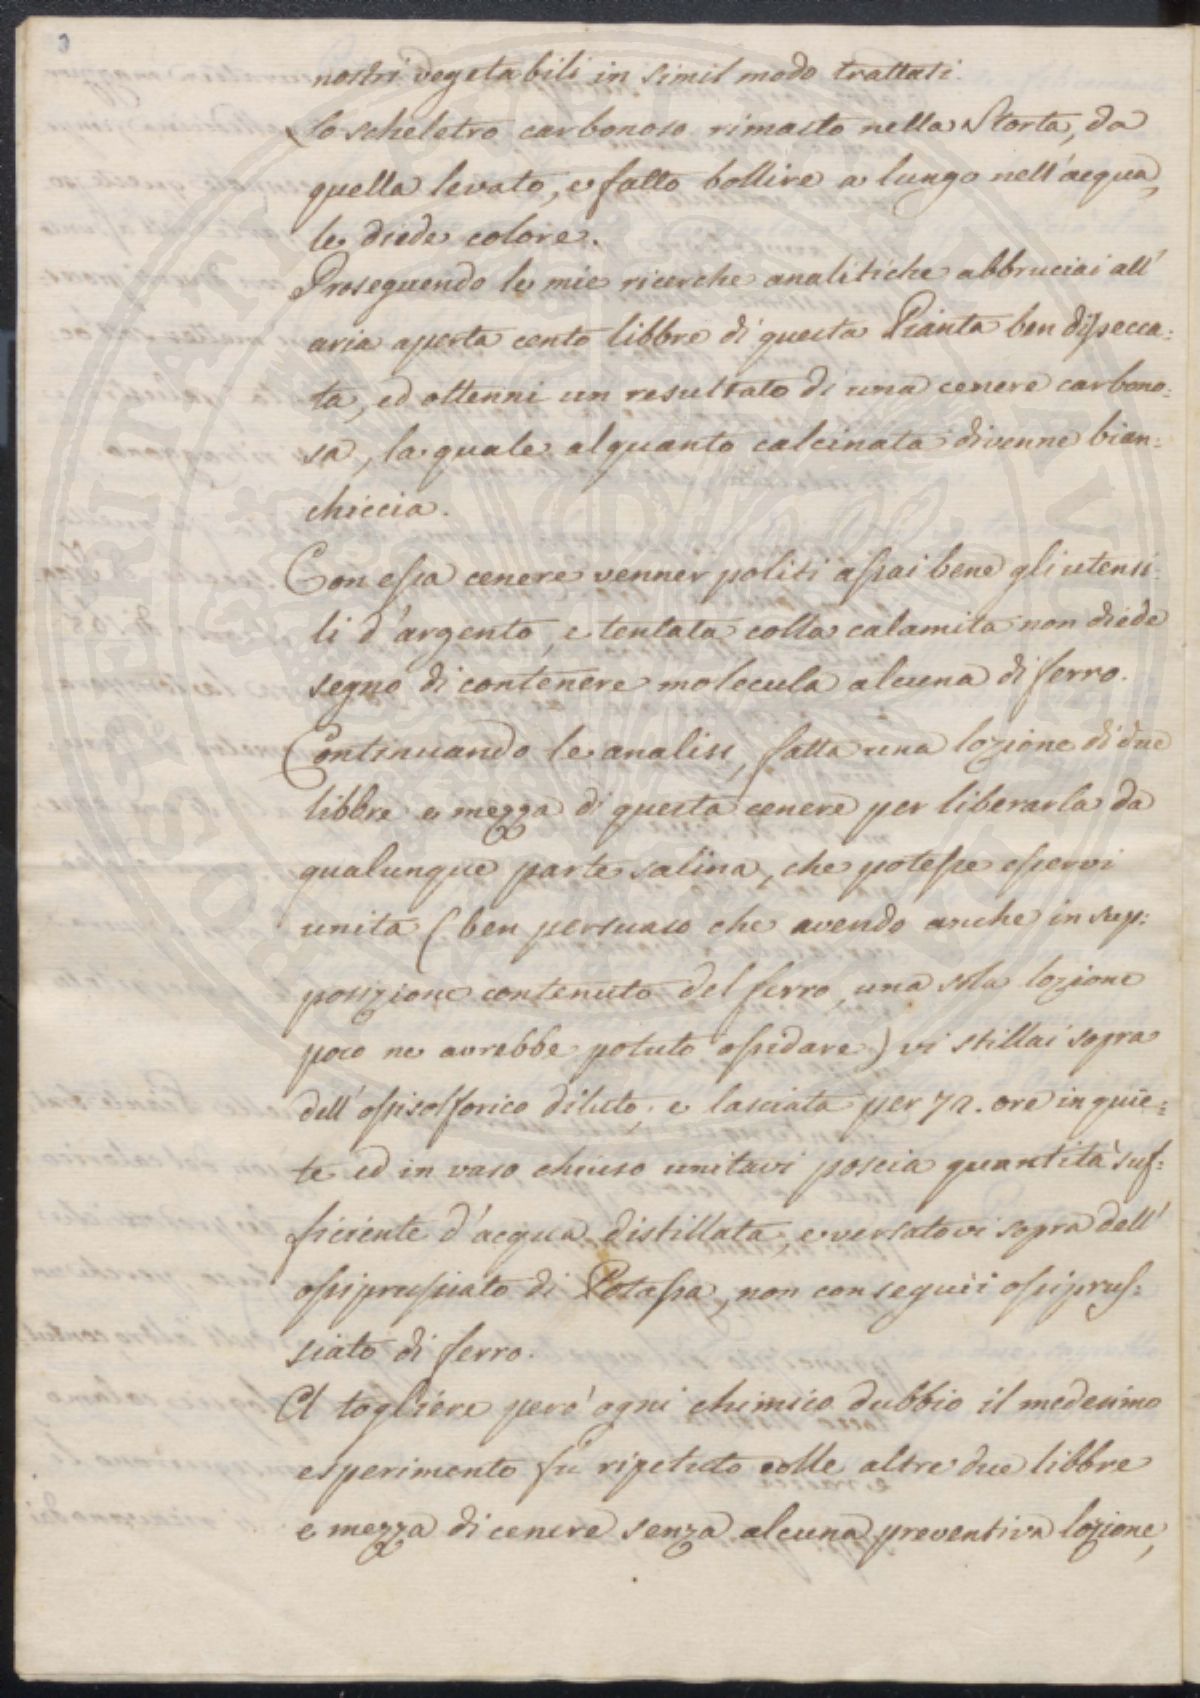 nostri vegetabili in simil modo trattati.
Lo scheletro carbonoso rimasto nella Storta, da
quella levato, e fatto bollire a lungo nell'acqua,
le diede colore.
Proseguendo le mie ricerche analitiche abbruciai all'
aria aperta cento libbre di questa Pianta ben dissecca:
ta, ed ottenni un resultato di una cenere carbono:
sa, la quale alquanto calcinata divenne bian:
chiccia.
Con essa cenere venner politi assai bene gli utensi:
li d'argento, e tentata colla calamita non diede
segno di contenere molecula alcuna di ferro.
Continuando le analisi, fatta una lozione di due
libbre e mezza di questa cenere per liberarla da
qualunque parte salina, che potesse esservi
unita (ben persuaso che avendo anche in sup:
posizione contenuto del ferro, una sola lozione
poco ne avrebbe potuto ossidare) vi stillai sopra
dell'ossisolforico diluto, e lasciata per 72. ore in quie:
te ed in vaso chiuso unitavi poscia quantità suf:
ficiente d'acqua distillata, e versatovi sopra dell'
ossiprussiato di Potassa, non conseguii ossiprus:
siato di ferro.
A togliere però ogni chimico dubbio il medesimo
esperimento fu ripetuto colle altre due libbre
e mezza di cenere senza alcuna preventiva lozione,